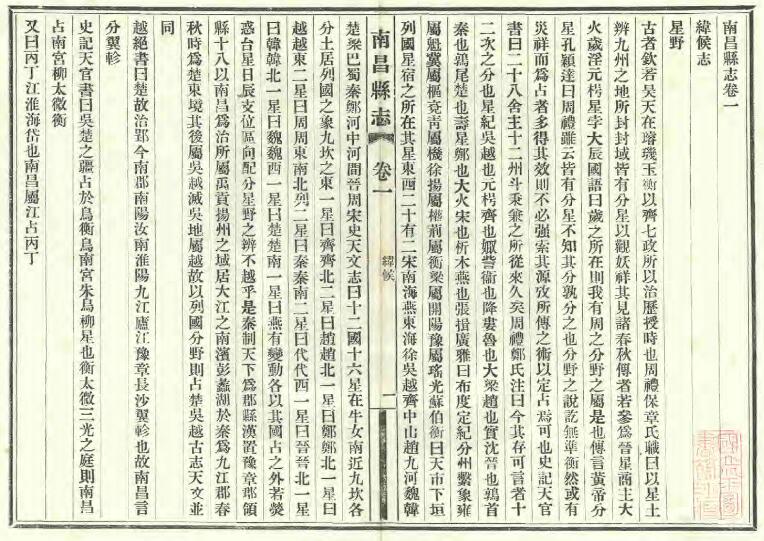 南昌縣志卷一
緯候志
星野
古者欽若昊天在璿璣玉衡以齊七政所以治歷授時也周禮保章氏職曰以星土
辨九州之地所封封域皆有分星以觀妖祥其見諸春秋傳者若參爲晉星商主大
火歲淫元枵星孛大辰國語曰歲之所在則我有周之分野之屬是也傳言黃帝分
星孔穎達曰周禮雖云皆有分星不知其分孰分之也分野之說訖無準衡然或有
災祥而爲占者多得其效則不必強索其源攷所傳之術以定占焉可也史記天官
書曰二十八舍主十二州斗秉兼之所從來久矣周禮鄭氏注曰今其存可言者十
二次之分也星紀吳越也元枵齊也娵訾衞也降婁魯也大梁趙也實沈晉也鶉首
秦也鶉尾楚也壽星鄭也大火宋也析木燕也張揖廣雅曰布度定紀分州繫象雍
屬魁冀屬樞兗青屬機徐揚屬權荊屬衡梁屬開陽豫屬瑤光蘇伯衡曰天市下垣
列國星宿之所在其星東西二十有二宋南海燕東海徐吳越齊中山趙九河魏韓
南昌縣志
卷一
緯候
一
楚梁巴蜀秦鄭河中河間晉周宋史天文志曰十二國十六星在牛女南近九坎各
分土居列國之象九坎之東一星曰齊齊北二星曰趙趙北一星曰鄭鄭北一星曰
越越東二星曰周周東南北列二星曰秦秦南二星曰代代西一星曰晉晉北一星
曰韓韓北一星曰魏魏西一星曰楚楚南一星曰燕有變動各以其國占之外若熒
惑台星日辰支位區向配分星野之辨不越乎是秦制天下爲郡縣漢置豫章郡領
縣十八以南昌爲治所屬禹貢揚州之域居大江之南濱彭蠡湖於秦爲九江郡春
秋時爲楚東境其後屬吳越滅吳地屬越故以列國分野則占楚吳越古志天文並
同
越絕書曰楚故治郢今南郡南陽汝南淮陽九江廬江豫章長沙翼軫也故南昌言
分翼軫
史記天官書曰吳楚之疆占於鳥衡鳥南宮朱鳥柳星也衡太微三光之庭則南昌
占南宮柳太微衡
又曰丙丁江淮海岱也南昌屬江占丙丁